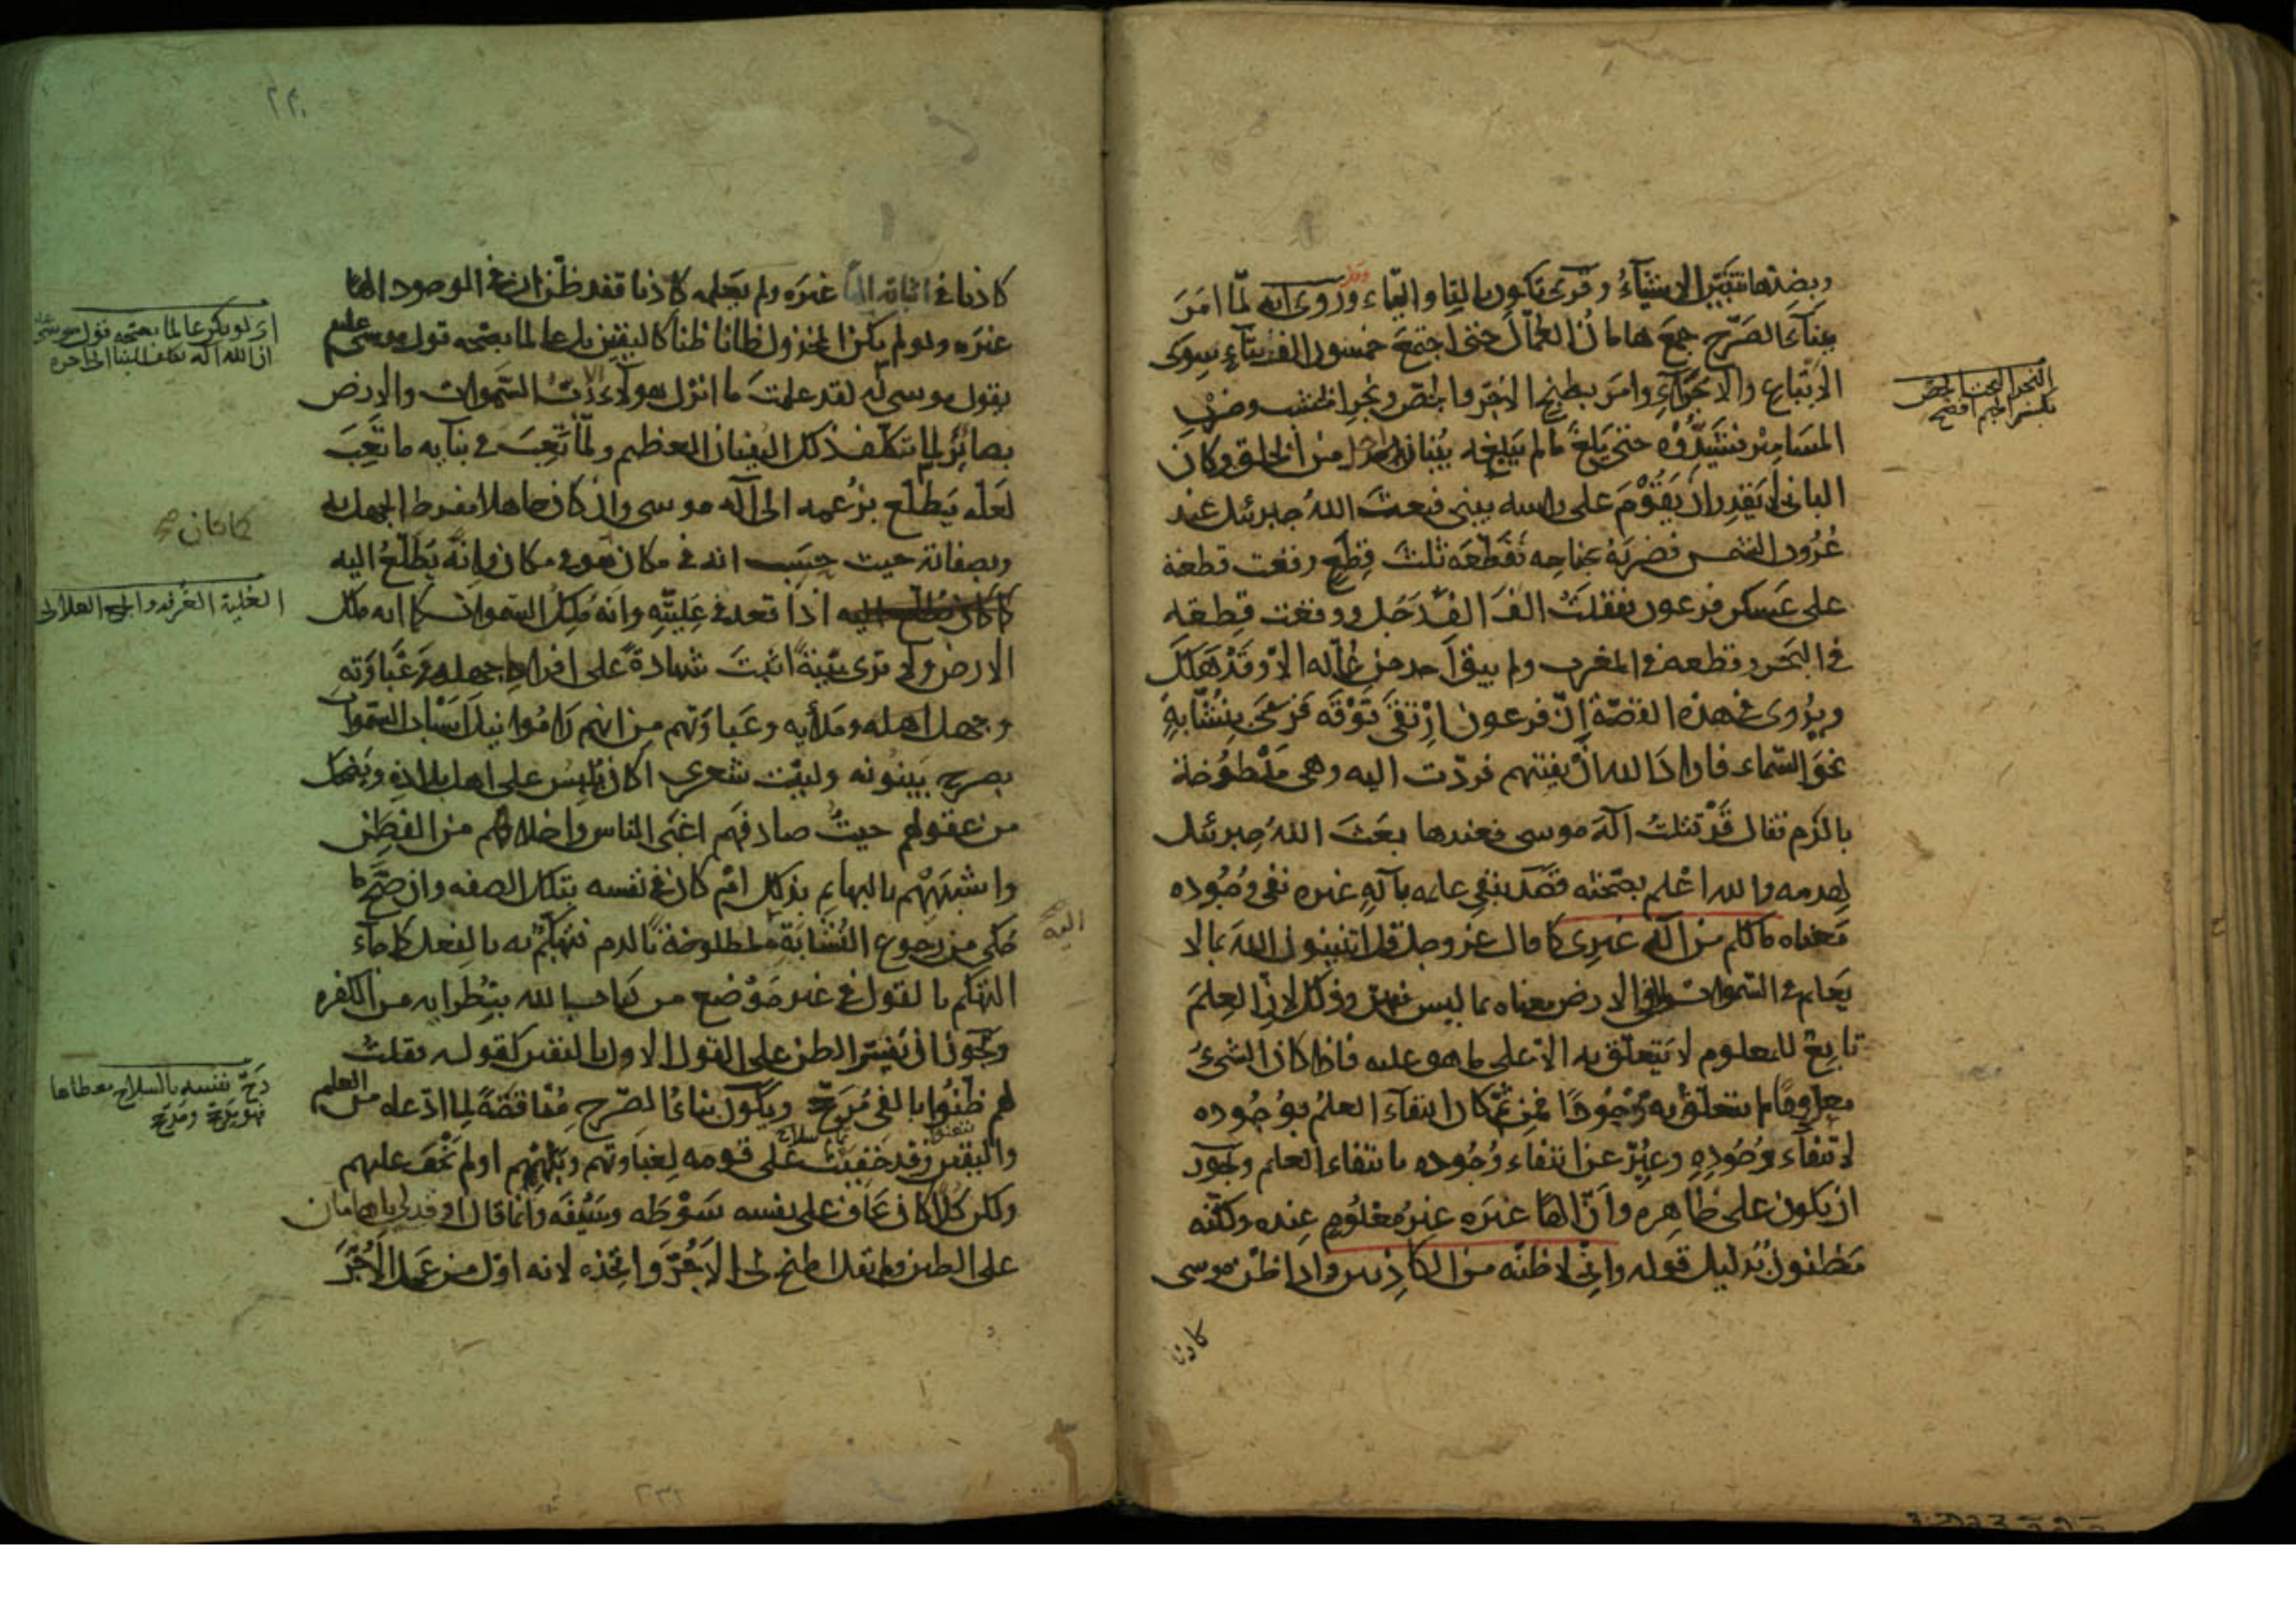 وبضدها تتبين الاشياء وقرئ تكون بالتاء والياء وروي انه لما امر
ببناء الصرح جمع هامان العمال حتى اجتمع خمسون الف بناء سوى
الاتباع والاجراء وامر بطبخ الاجر والجص ونجر الخشب وضرب
المسامير فشيدوه حتى بلغ ما لم يبلغه بنيان احد من الخلق وكان
الباني لا يقدر ان يقوم على راسه يبني فبعث الله جبرئيل عند
غروب الشمس فضربه بجناحه فقطعه ثلث قطع وقعت قطعة
على عسكر فرعون فقتلت الف الف رجل ووقعت قطعه
في البحر وقطعه في المغرب ولم يبق احد من عماله الا وقد هلك
ويروى في هذه القصة ان فرعون ارتقى فوقه فرمى بنشابة
نحو السماء فاراد الله ان يفتنهم فردت اليه وهي ملطوخة
بالدم فقال قد قتلت اله موسى فعندها بعث الله جبرئيل
لهدمه والله اعلم بصحته قصد بنفي علمه بآله غيره نفي وجوده
معناه ما لكم من اله غيري كما قال عز وجل قل اتنبئون الله بما لا
يعلم في السموات ولا في الارض معناه بما ليس فيهن وذلك لان العلم
تابع للمعلوم لا يتعلق به الا على ما هو عليه فاذا كان الشيء
معدوما لم يتعلق به موجودا فمن ثم كان انتفاء العلم بوجوده
لانتفاء وجوده وعبر عن انتفاء وجوده بانتفاء العلم ويجوز
ان يكون على ظاهره وان الها غيره غير معلوم عنده ولكنه
مظنون بدليل قوله واني لاظنه من الكاذبين واذا ظن موسى
كاذبا
النجر النحت
بكسر الجيم افصح
كاذبا في اثباته الها غيره ولم يعلمه كاذبا فقد ظن ان في الوجود الها
غيره ولو لم يكن المخذول ظانا ظنا كاليقين بل عالما بصحة قول موسى عليه
بقول موسى له لقد علمت ما انزل هؤلاء الا رب السموات والارض
بصائر لما تكلف ذلك البنيان العظيم ولما تعب في بنائه ما تعب
لعله يطلع بزعمه الى اله موسى وان كان جاهلا مفرط الجهل به
وبصفاته حيث حسب انه في مكان هو في مكان وانه يطلع اليه
كما كان يطلع اليه اذا قعد في عليته وانه ملك السموات كما انه ملك
الارض ولا ترى بينة اثبت شهادة على افراط جهله وغباوته
وجهل اهله وملأيه وغباوتهم من انهم راموا نيل اسباب السموات
بصرح يبنونه وليت شعري اكان يلبس على اهل بلاده ويضحك
من عقولهم حيث صادفهم اغبى الناس واخلاهم من الفطن
واشبههم بالبهائم بذلك ام كان في نفسه بتلك الصفه وان صح ما
حكي من رجوع النشابة ملطوخة بالدم فتهكم به بالفعل كما جاء
التهكم بالقول في غير موضع من كتاب الله بنظرائه من الكفره
ويجوز ان يفسر الظن على القول الاول باليقين كقوله فقلت
لهم ظنوا بالفي مدجج ويكون بناء الصرح مناقضة لما ادعاه من العلم
واليقين وقد خفيت على قومه لغباوتهم وبلههم او لم تخف عليهم
ولكن كلا كان يخاف على نفسه سوطه وسيفه وانما قال اوقد لي يا هامان
على الطين ولم يقل اطبخ لي الاجر واتخذه لانه اول من عمل الاجر
اي لو لم يكن عالما بصحة قول موسى
كما كان
العلية الغرفه والجمع العلالي
اليه